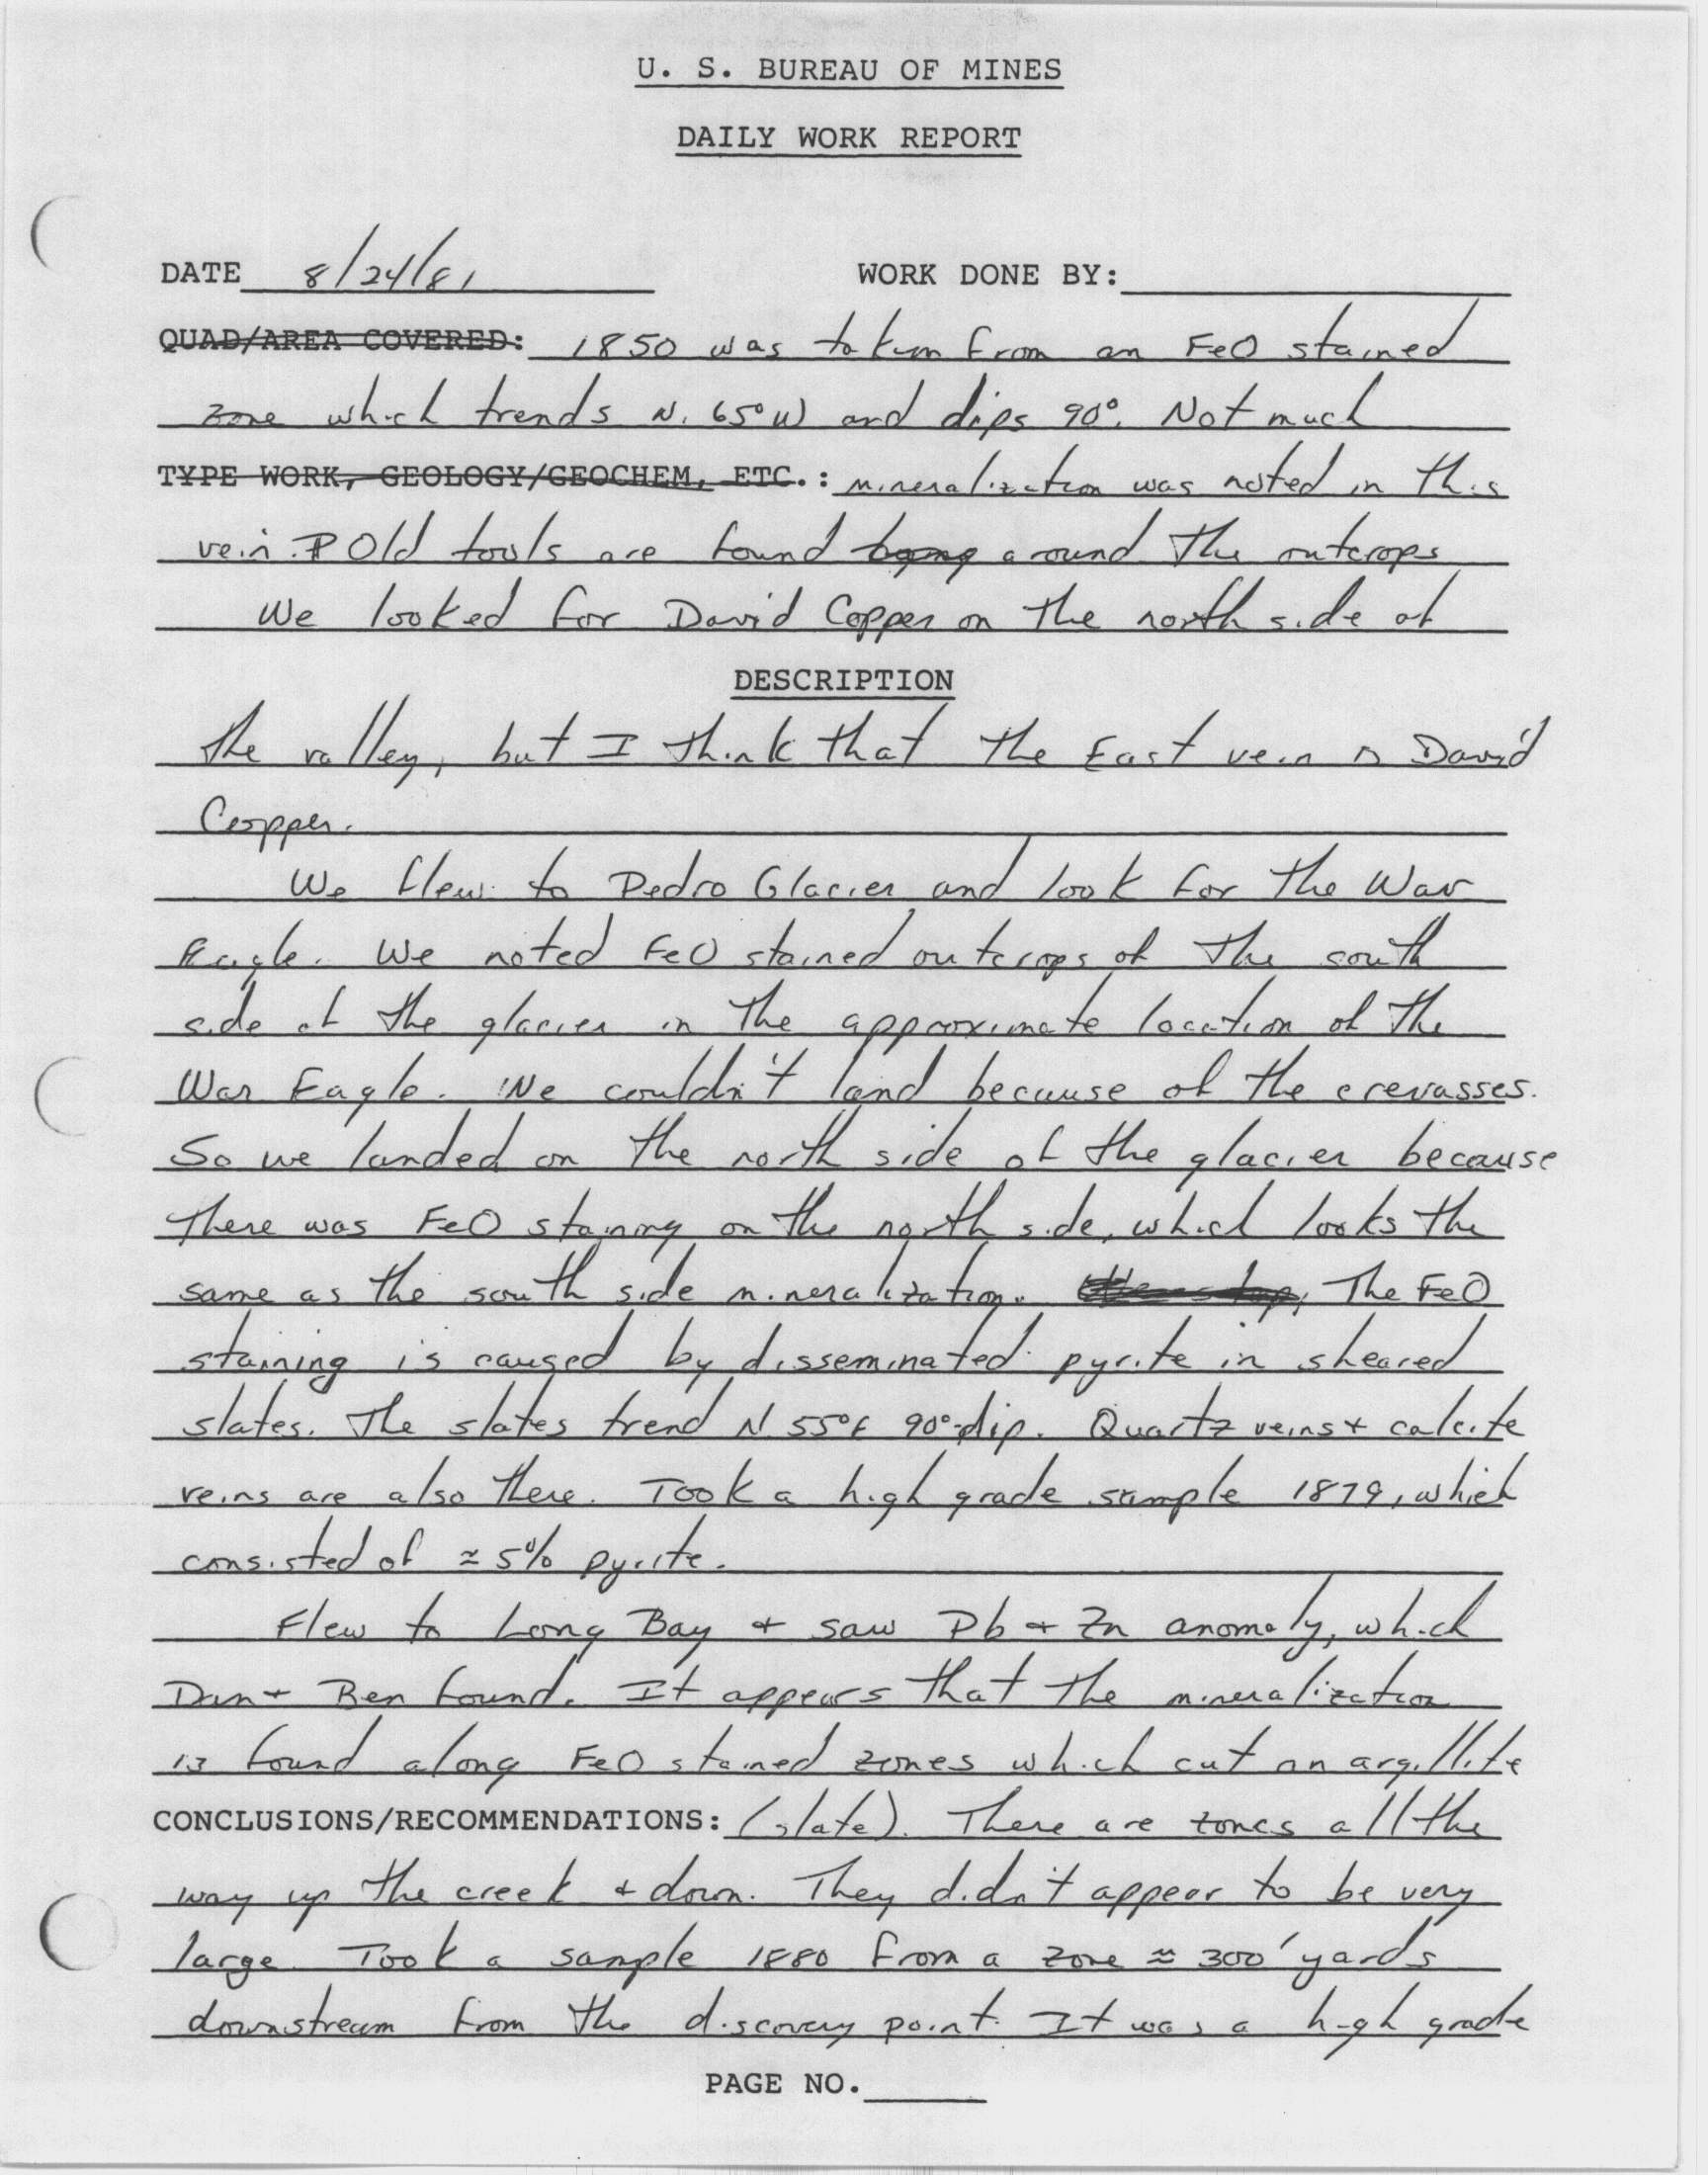 U. S. BUREAU OF MINES
DAILY WORK REPORT
DATE 8/24/81 WORK DONE BY:
QUAD/AREA COVERED: 1850 was taken from an FeO stained
zone which trends N. 65°W and dips 90°. Not much
TYPE WORK, GEOLOGY/GEOCHEM, ETC.: mineralization was noted in this
vein. Old tools are found around the outcrops
We looked for David Copper on the north side of
DESCRIPTION
the valley, but I think that the East vein is David
Copper.
We flew to Pedro Glacier and look for the War
Eagle. We noted FeO stained outcrops of the south
side of the glacier in the approximate location of the
War Eagle. We couldn't land because of the crevasses.
So we landed on the north side of the glacier because
there was FeO staining on the north side, which looks the
same as the south side mineralization. The FeO
staining is caused by disseminated pyrite in sheared
slates. The slates trend N 55°E 90° dip. Quartz veins + calcite
veins are also there. Took a high grade sample 1879, which
consisted of ≈ 5% pyrite.
Flew to Long Bay + saw Pb + Zn anomaly, which
Dan + Ben found. It appears that the mineralization
is found along FeO stained zones which cut an argillite
CONCLUSIONS/RECOMMENDATIONS: (slate). There are zones all the
way up the creek + down. They didn't appear to be very
large. Took a sample 1880 from a zone ≈ 300' yards
downstream from the discovery point. It was a high grade
PAGE NO.